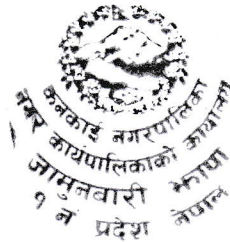 कन्काई नगरपालिका
नगर कार्यपालिकाको कार्यालय
झापा
१ नं प्रदेश नेपाल